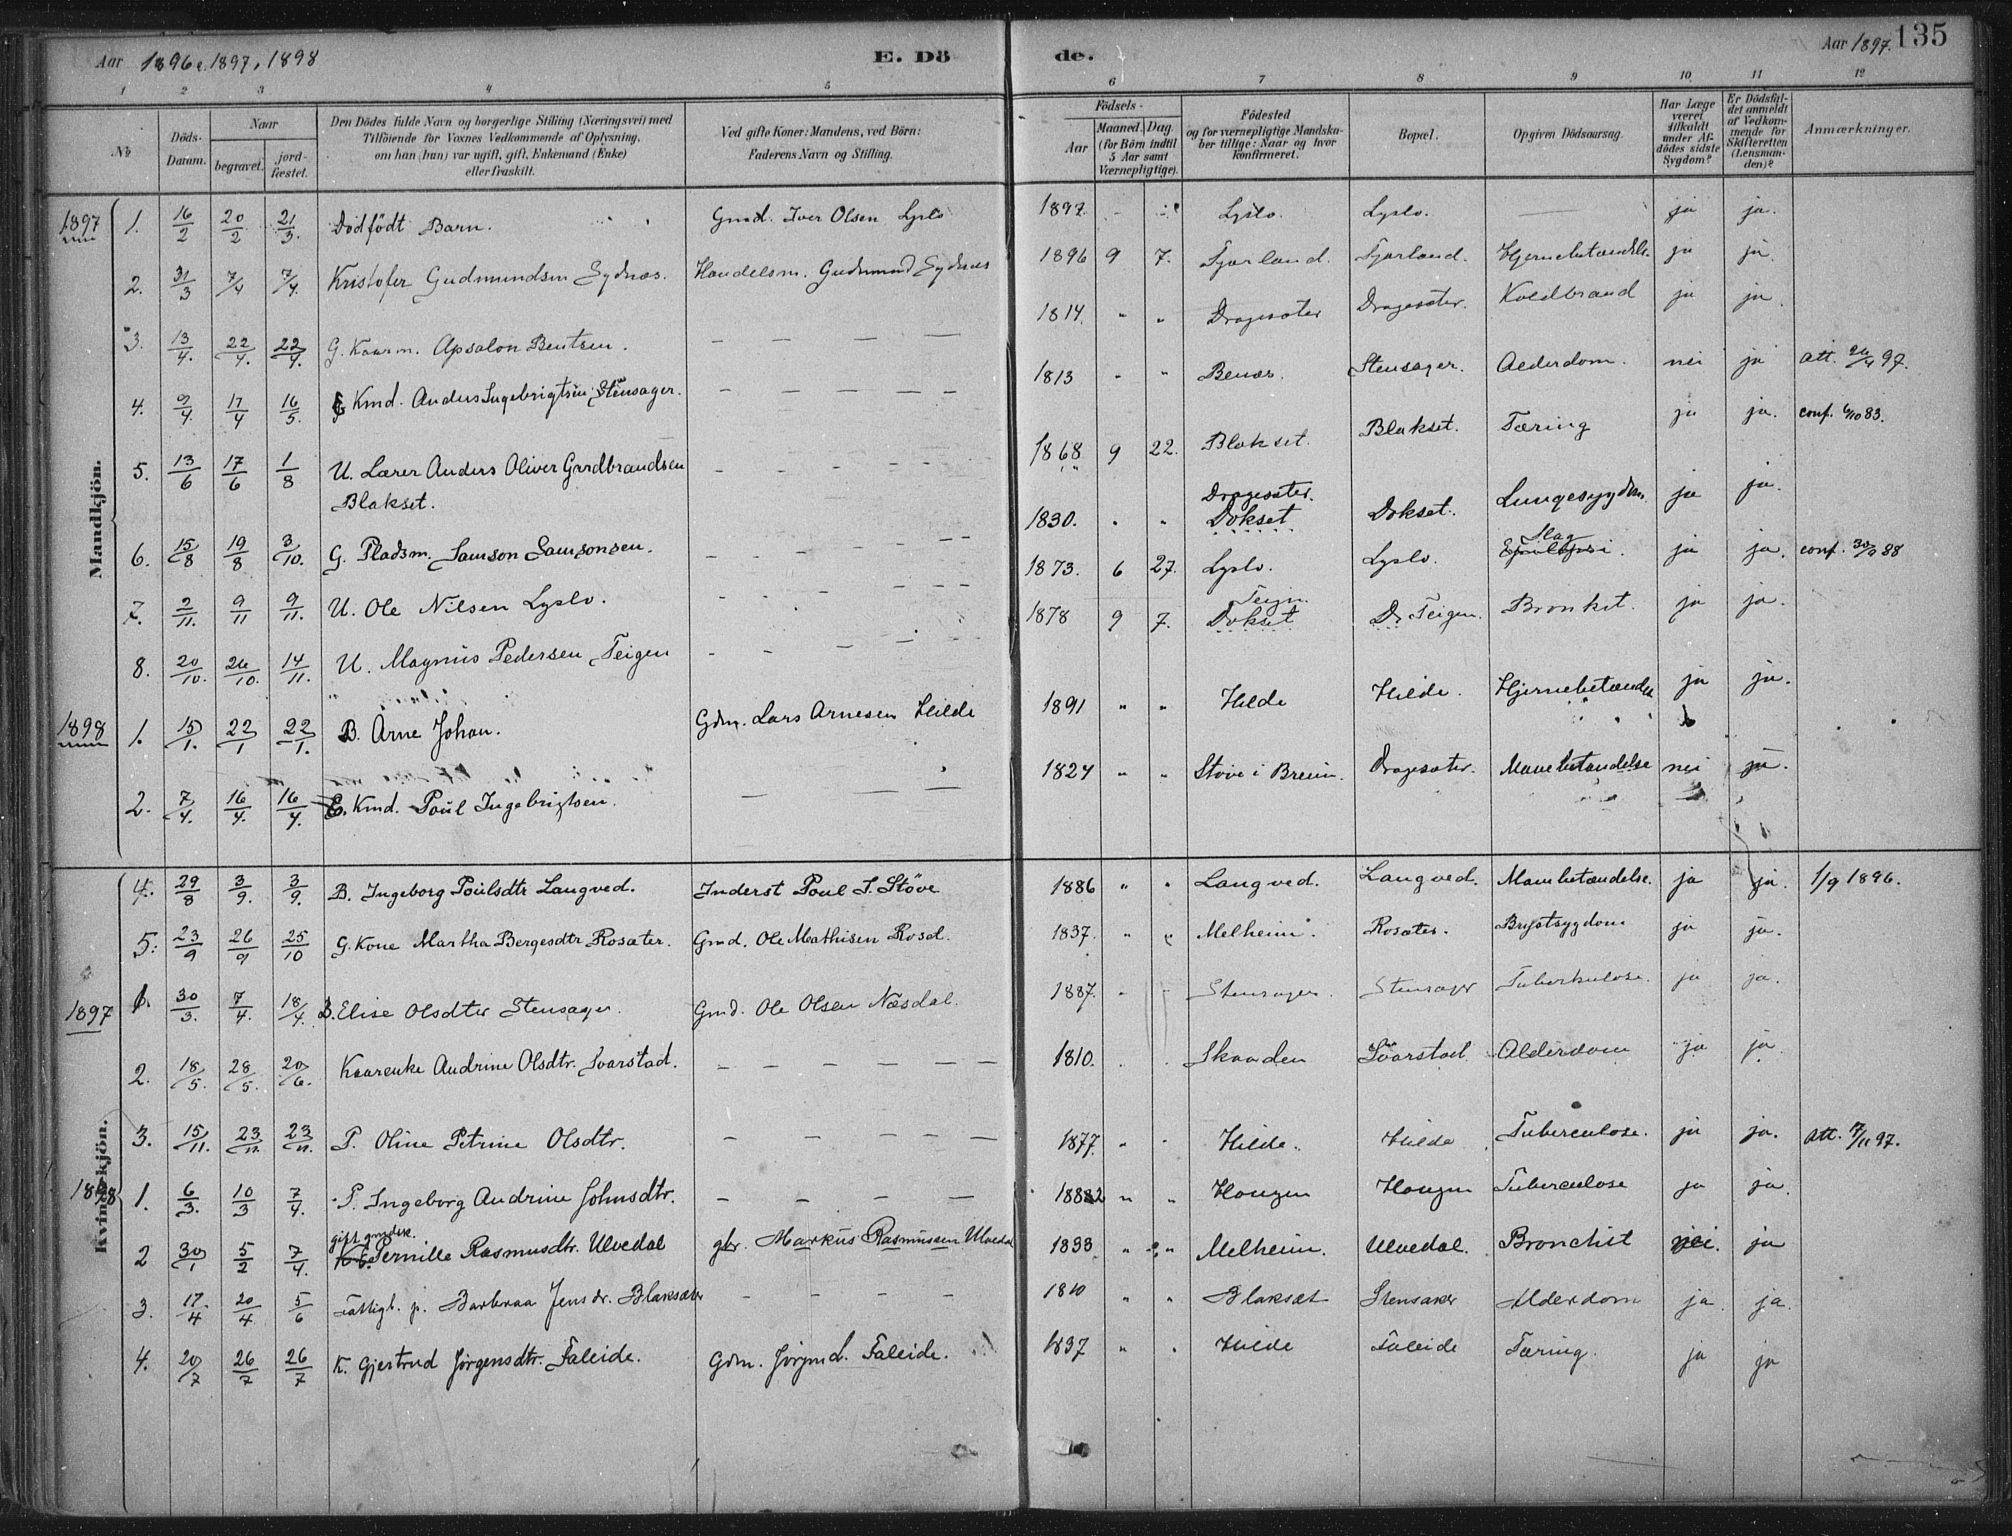 Aar 1896 e. 1897, 1898
E. Dö
de.
Aar 1897. 135
1 2 3 4 5 6 7 8 9 10 11 12
No
Döds-Datum.
Naar
begravet.
jord-fæstet.
Den Dödes fulde Navn og borgerlige Stilling (Næringsvei) med
Tilföiende for Voxnes Vedkommende af Oplysning,
om han (hun) var ugift, gift, Enkemand (Enke)
eller fraskilt.
Ved gifte Koner: Mandens, ved Börn:
Faderens Navn og Stilling.
Födsels-
Aar
Maaned. Dag.
(for Börn indtil
5 Aar samt
Værnepligtige).
Födested
og for værnepligtige Mandska-
ber tillige: Naar og hvor
konfirmeret.
Bopæl.
Opgiven Dödsaarsag.
Har Læge
været
tilkaldt
under Af-
dödes sidste
Sygdom?
Er Dödsfal-
det anmeldt
af Vedkom-
mende for
Skifteretten
(Lensman-
den)?
Anmærkninger.
Mandkjön.
1897 1. 16/2 20/2 21/3. Dödfödt Barn. Gmd. Iver Olsen Lyslo 1897 Lyslo. Lyslo. — ja ja.
2. 31/3 7/4 7/4. Kristofer Gudmundsen Sydnæs. Handelsm. Gudmund Sydnæs 1896 9 7. Fjærland. Fjærland. Hjernebetændelse ja ja.
3. 13/4. 22/4. 22/4. G. Kaarm. Apsalon Bentsen. — — — — 1814 " " Dragesæter Dragesæter. Koldbrand ja ja
4. 9/4. 17/4 16/5. Kmd. Anders Ingebrigtsen Stensager. — — — — 1813 " " Benæs. Stensager. Alderdom. nei ja att. 26/4 97.
5. 13/6 17/6 1/8 U. Lærer Anders Oliver Gurdbrandsen
Blakset. — — — — 1868 9 22. Blakset. Blakset. Tæring ja ja. conf. 6/10 83.
6. 15/8 19/8 3/10. G. Pladsm. Samson Samsonsen. — — — — 1830. " " Dragesæter. Dokset Dokset. Lungesygdom ja ja.
7. 2/11. 9/11 9/11. U. Ole Nilsen Lyslo. — — — 1873. 6 27. Lyslo. Lyslo. Slag ja ja. conf. 30/9 88
8. 20/10. 26/10. 14/11. U. Magnus Pedersen Teigen — — — 1878 9 7. Teign. Dokset Teigen. Bronkit. ja ja.
1898 1. 15/1. 22/1 22/1. B. Arne Johan. Gdm. Lars Arnesen Hilde 1891 " " Hilde Hilde. Hjernebetændelse ja ja.
2. 7/4. 16/4. 16/4 E. Kmd. Poul Ingebrigtsen. — — — 1824 " " Støve i Breim. Dragesæter. Mavebetændelse nei ja.
Kvindekjön.
4. 29/8 3/9. 3/9. B. Ingeborg Poulsdtr Langved. Inderst Poul J. Støve 1886 " " Langved. Langved. Mavebetændelse. ja ja. 1/9 1896.
5. 23/9 26/9 25/10 G. Kone Martha Bergesdtr Rosæter. Gmd. Ole Mathisen Rosæt. 1837. " " Melheim. Rosæter. Brystsygdom ja ja.
1897 1. 30/3. 7/4. 18/4. B. Elise Olsdter Stensager. Gmd. Ole Olsen Næsdal. 1887. Stensager. Stensager Tuberkulose. ja ja.
2. 18/5. 28/5. 20/6. Kaarenke Andrine Olsdtr. Svarstad. — — — — — 1810. Skaaden Svarstad. Alderdom ja ja.
3. 15/11. 23/11. 23/11. P. Oline Petrine Olsdtr. — — — — — 1877. Hilde. Hilde Tuberculose. ja ja. att. 7/11 97.
1898 1. 6/3. 10/3 7/4. P. Ingeborg Andrine Johnsdtr. — — — — 1882 " " Hougen Hougen Tuberculose ja ja.
2 30/1 5/2 7/4. gift gmdsk. Pernille Rasmusdtr. Ulvedal gbr. Markus Rasmussen Ulvedal 1833 " " Melheim. Ulvedal. Bronchit nei. ja
3. 17/4 20/4 5/6 Fattigl. p. Barbraa Jensdr. Blaksæter — — — — 1810 " " Blaksæt Stensaker Alderdom ja. ja.
4. 20/7 26/7 26/7 K. Gjertrud Jørgensdtr. Faleide. Gdm. Jørgen L. Faleide. 1837 " " Hilde Faleide Tæring. ja ja